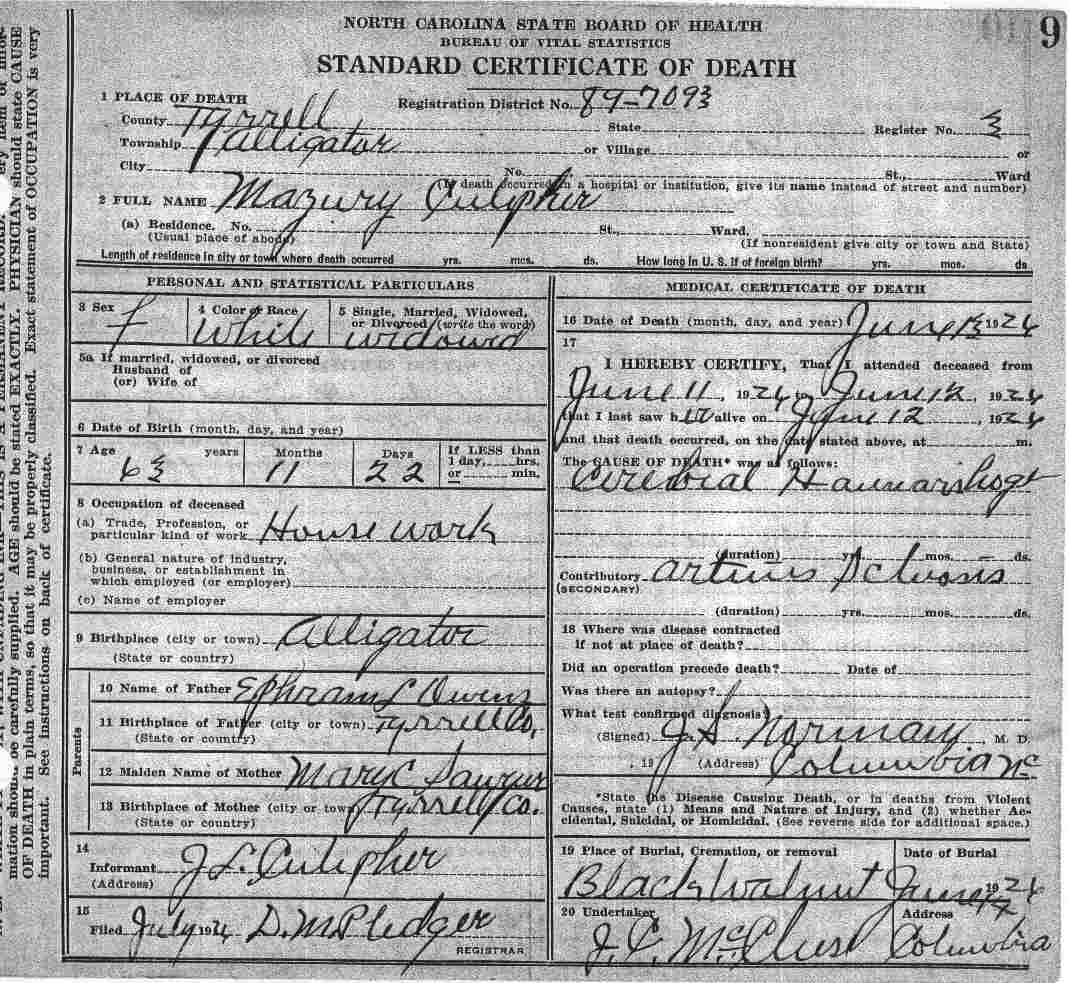 9
NORTH CAROLINA STATE BOARD OF HEALTH
BUREAU OF VITAL STATISTICS
STANDARD CERTIFICATE OF DEATH
1 PLACE OF DEATH
Registration District No. 89-7093
County Tyrrell State Register No. 3
Township Alligator or Village or
City No. St., Ward
(If death occurred in a hospital or institution, give its name instead of street and number)
2 FULL NAME Mazury Culipher
(a) Residence. No. St., Ward,
(Usual place of abode) (If nonresident give city or town and State)
Length of residence in city or town where death occurred yrs. mos. ds. How long in U. S. if of foreign birth? yrs. mos. ds
PERSONAL AND STATISTICAL PARTICULARS
3 Sex 4 Color or Race 5 Single, Married, Widowed,
or Divorced (write the word)
f White widowed
5a If married, widowed, or divorced
Husband of
(or) Wife of
6 Date of Birth (month, day, and year)
7 Age years Months Days If LESS than
1 day, hrs.
or min.
63 11 22
8 Occupation of deceased
(a) Trade, Profession, or
particular kind of work House work
(b) General nature of industry,
business, or establishment in
which employed (or employer)
(c) Name of employer
9 Birthplace (city or town) Alligator
(State or country)
Parents
10 Name of Father Ephram L Owens
11 Birthplace of Father (city or town) Tyrrell Co.
(State or country)
12 Maiden Name of Mother Mary C
13 Birthplace of Mother (city or town) Tyrrell Co.
(State or country)
14
Informant J L Culipher
(Address)
15
Filed July 192 D. M. Pledger
REGISTRAR
MEDICAL CERTIFICATE OF DEATH
16 Date of Death (month, day, and year) June 192
17
I HEREBY CERTIFY, That I attended deceased from
June 11, 192 to June 12, 192
that I last saw h alive on June 12, 192
and that death occurred, on the date stated above, at m.
The CAUSE OF DEATH* was as follows:
Cerebral
(duration) yrs. mos. ds.
Contributory
(SECONDARY)
(duration) yrs. mos. ds.
18 Where was disease contracted
if not at place of death?
Did an operation precede death? Date of
Was there an autopsy?
What test confirmed diagnosis?
(Signed) J S Norman M. D.
, 19 (Address) Columbia NC
*State the Disease Causing Death, or in deaths from Violent
Causes, state (1) Means and Nature of Injury, and (2) whether Ac-
cidental, Suicidal, or Homicidal. (See reverse side for additional space.)
19 Place of Burial, Cremation, or removal Date of Burial
Black Walnut June 192
20 Undertaker Address
J. C. Columbia
mation should be carefully supplied. AGE should be stated EXACTLY. PHYSICIAN should state CAUSE
OF DEATH in plain terms, so that it may be properly classified. Exact statement of OCCUPATION is very
important. See instructions on back of certificate.